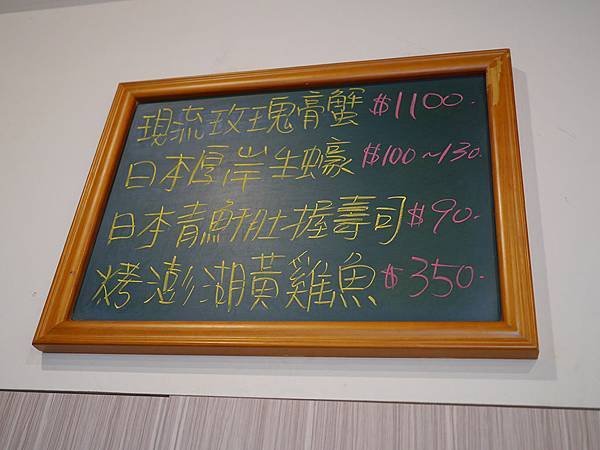 現流玫瑰膏蟹 $1100.
日本厚岸生蠔 $100~130.
日本青魽肚握壽司 $90.
烤澎湖黃雞魚 $350.